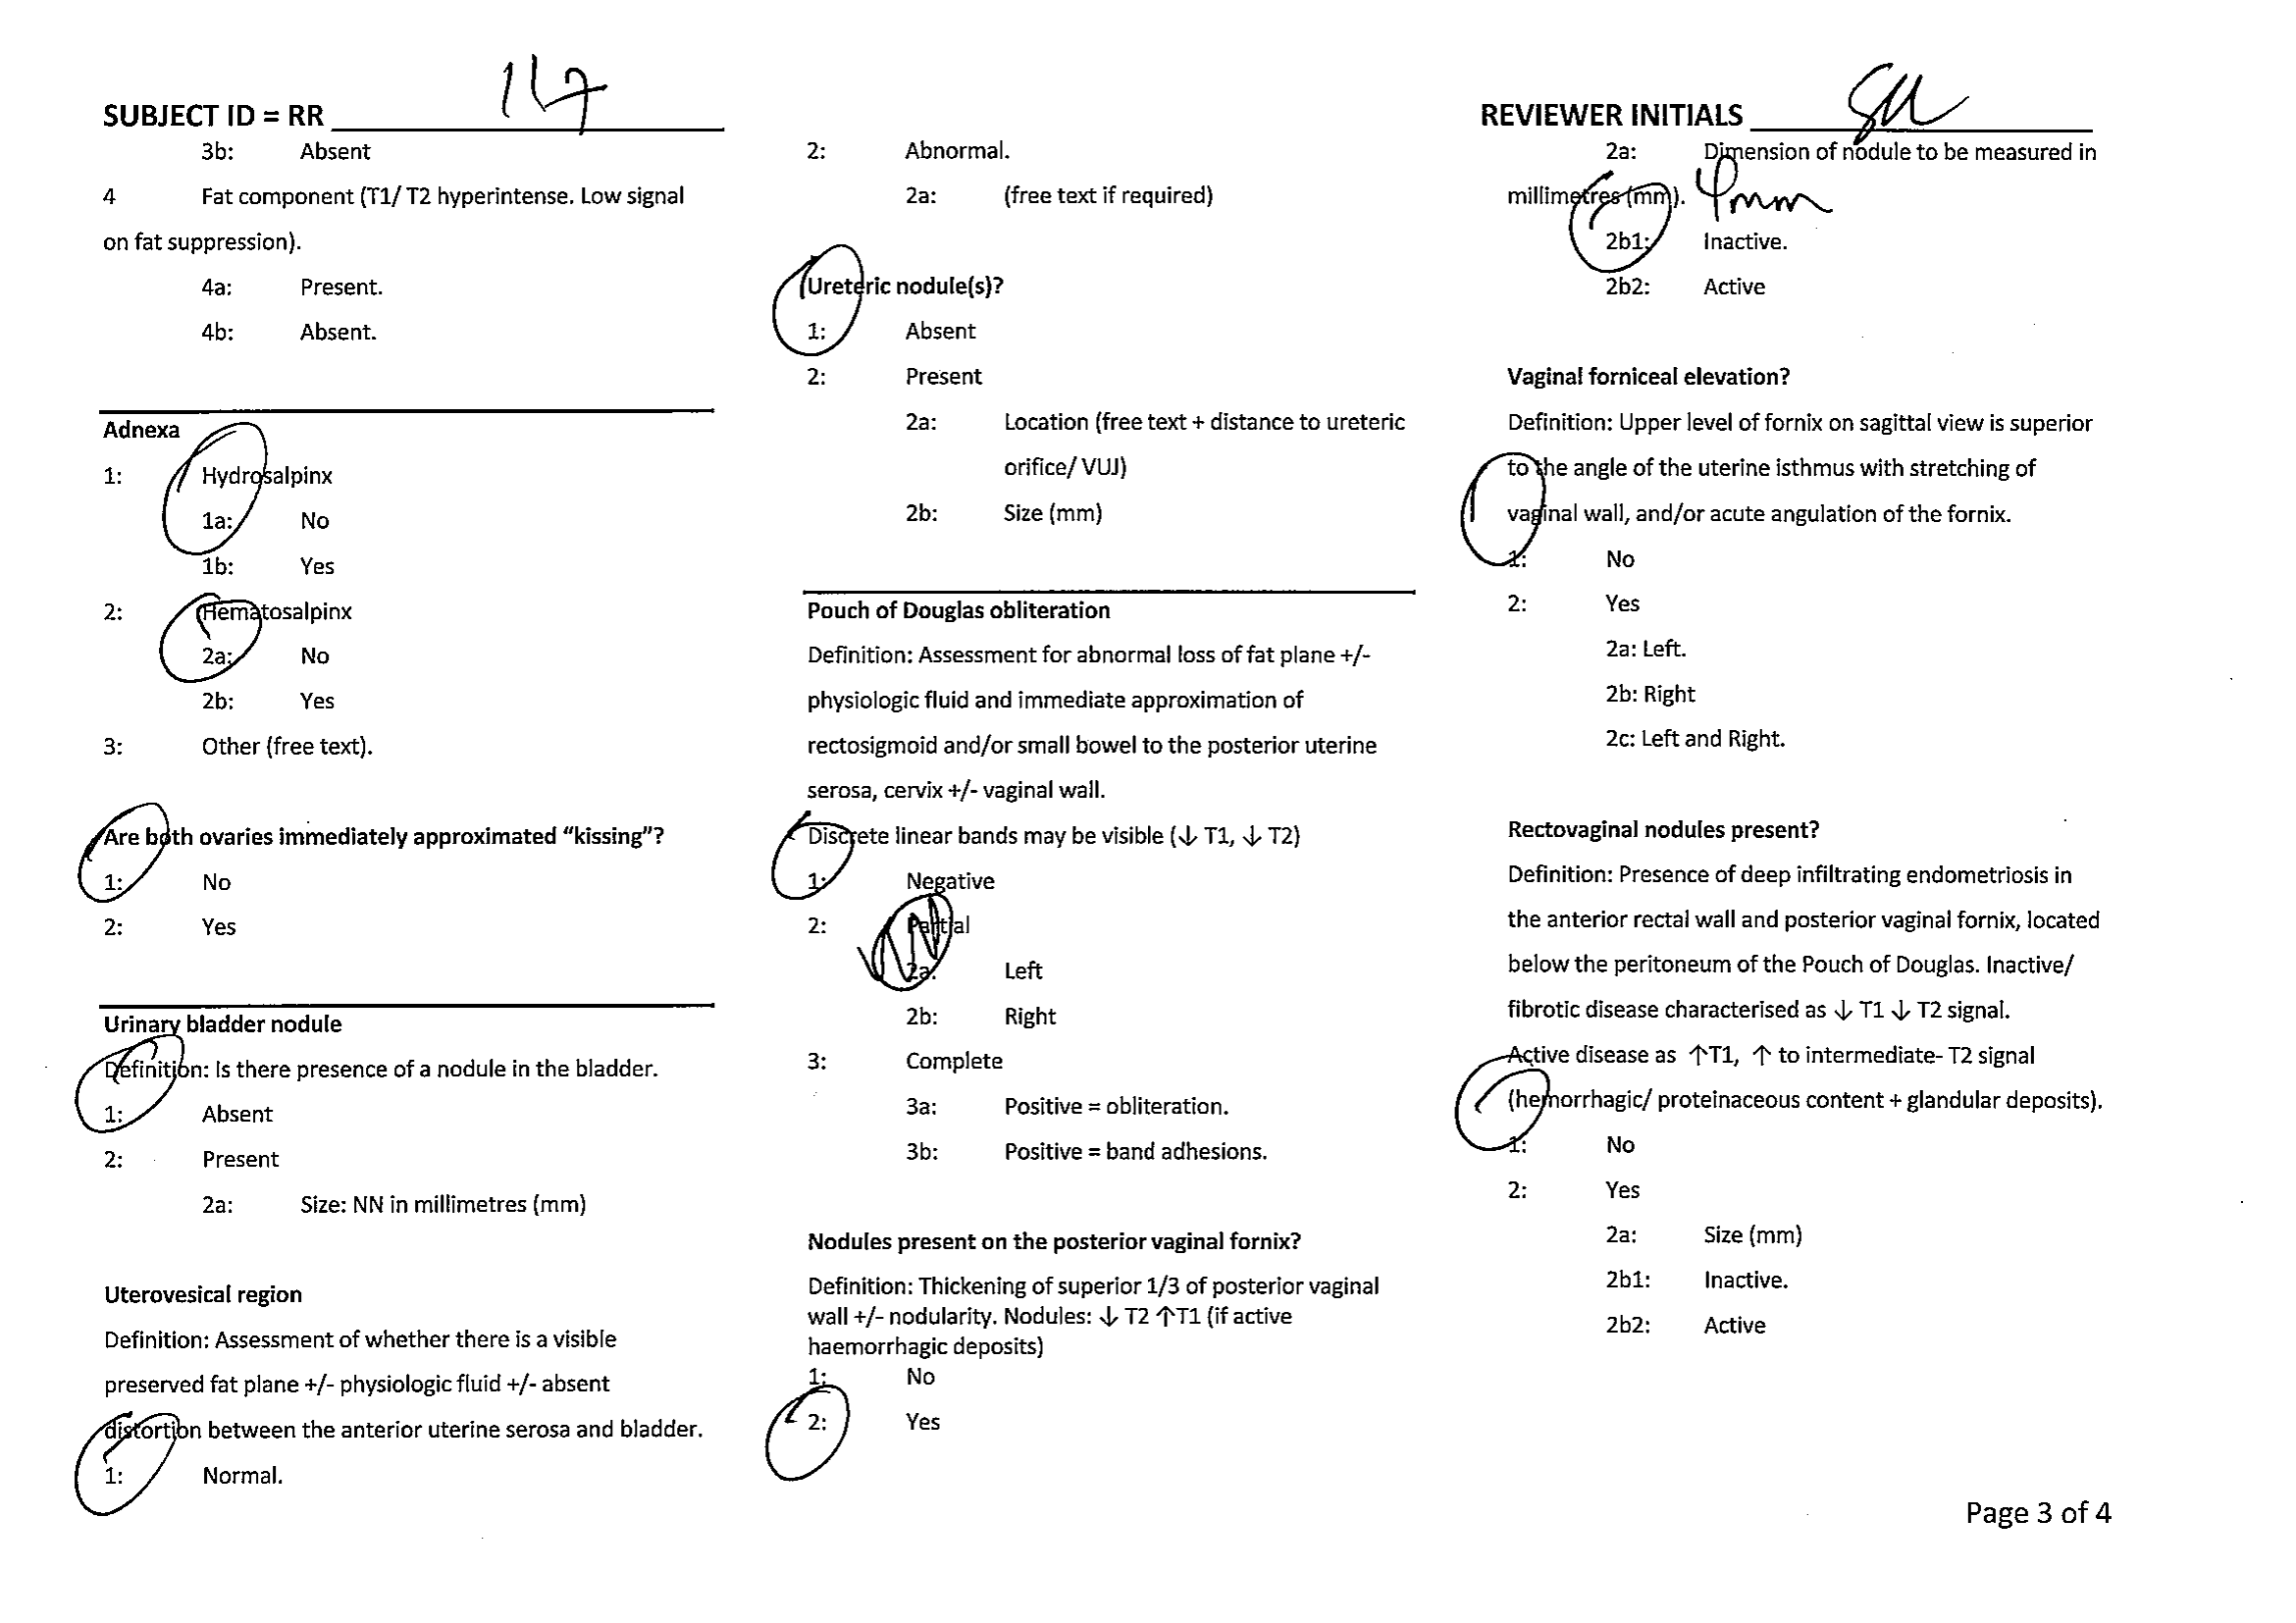 SUBJECT ID = RR
3b: Absent
4 Fat component (T1/ T2 hyperintense. Low signal
on fat suppression).
4a: Present.
4b: Absent.
Adnexa
1: Hydrosalpinx
1a: No
1b: Yes
2: Hematosalpinx
2a: No
2b: Yes
3: Other (free text).
Are both ovaries immediately approximated “kissing”?
1: No
2: Yes
Urinary bladder nodule
Definition: Is there presence of a nodule in the bladder.
1: Absent
2: Present
2a: Size: NN in millimetres (mm)
Uterovesical region
Definition: Assessment of whether there is a visible
preserved fat plane +/- physiologic fluid +/- absent
distortion between the anterior uterine serosa and bladder.
1: Normal.
2: Abnormal.
2a: (free text if required)
Ureteric nodule(s)?
1: Absent
2: Present
2a: Location (free text + distance to ureteric
orifice/ VUJ)
2b: Size (mm)
Pouch of Douglas obliteration
Definition: Assessment for abnormal loss of fat plane +/-
physiologic fluid and immediate approximation of
rectosigmoid and/or small bowel to the posterior uterine
serosa, cervix +/- vaginal wall.
Discrete linear bands may be visible (↓ T1, ↓ T2)
1: Negative
2: Partial
2a: Left
2b: Right
3: Complete
3a: Positive = obliteration.
3b: Positive = band adhesions.
Nodules present on the posterior vaginal fornix?
Definition: Thickening of superior 1/3 of posterior vaginal
wall +/- nodularity. Nodules: ↓ T2 ↑T1 (if active
haemorrhagic deposits)
1: No
2: Yes
REVIEWER INITIALS
2a: Dimension of nodule to be measured in
millimetres (mm). 4mm
2b1: Inactive.
2b2: Active
Vaginal forniceal elevation?
Definition: Upper level of fornix on sagittal view is superior
to the angle of the uterine isthmus with stretching of
vaginal wall, and/or acute angulation of the fornix.
1: No
2: Yes
2a: Left.
2b: Right
2c: Left and Right.
Rectovaginal nodules present?
Definition: Presence of deep infiltrating endometriosis in
the anterior rectal wall and posterior vaginal fornix, located
below the peritoneum of the Pouch of Douglas. Inactive/
fibrotic disease characterised as ↓ T1 ↓ T2 signal.
Active disease as ↑T1, ↑ to intermediate- T2 signal
(hemorrhagic/ proteinaceous content + glandular deposits).
1: No
2: Yes
2a: Size (mm)
2b1: Inactive.
2b2: Active
Page 3 of 4